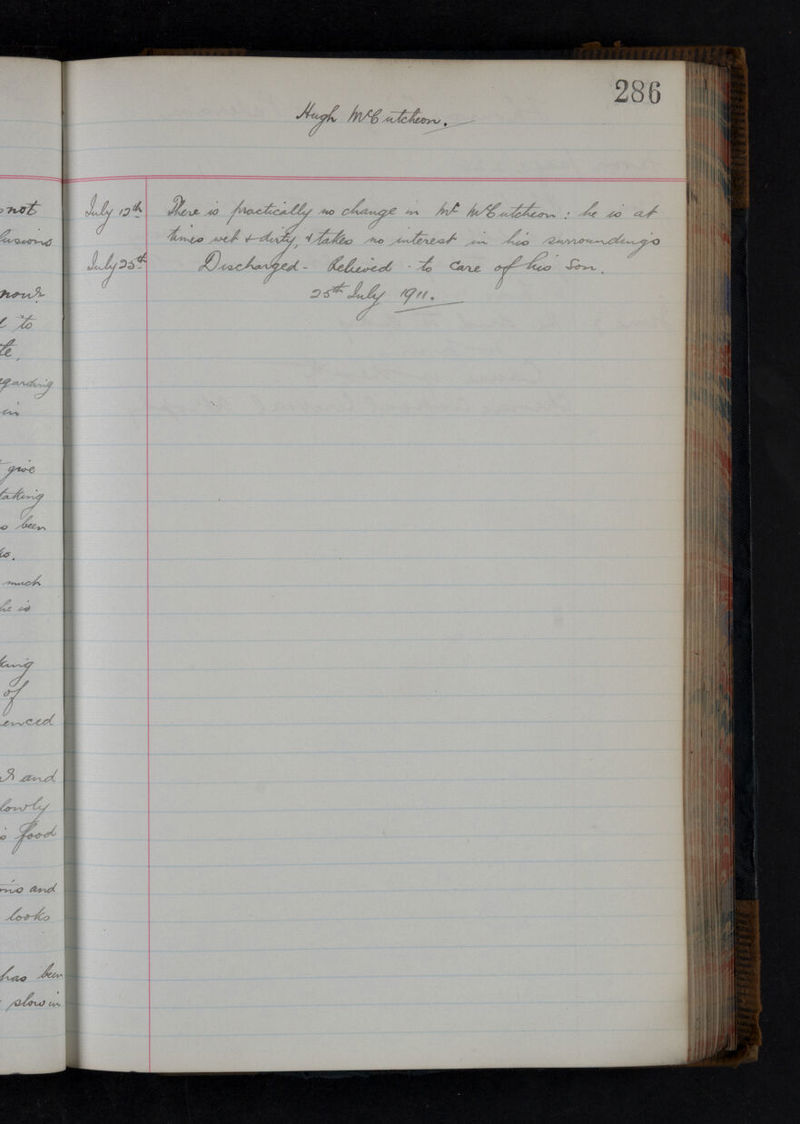 286
Hugh McCutcheon.
July 12th There is practically no change in Mr McCutcheon: he is at
times wet & dirty, & takes no interest in his surroundings
July 25th Discharged - Relieved - to care of his Son.
25th July 1911.
not
lusions
now
to
te.
garding
in
give
taking
been
so.
much
he is
king
of
enced
and
lowly
food
and
looks
has been
slow in